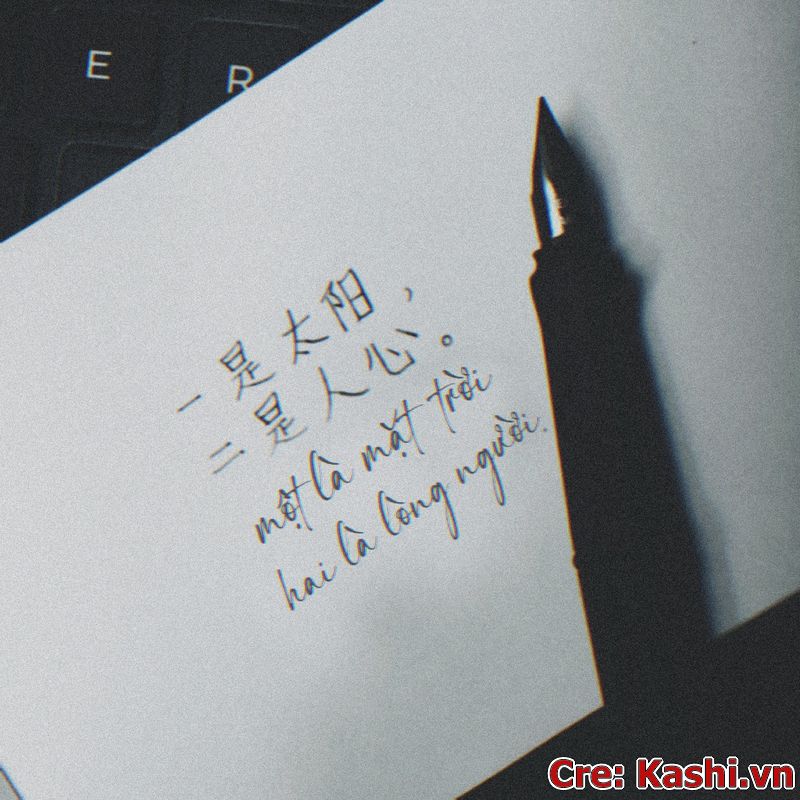 E R
一是太阳，
二是人心。
một là mặt trời
hai là lòng người.
Cre: Kashi.vn